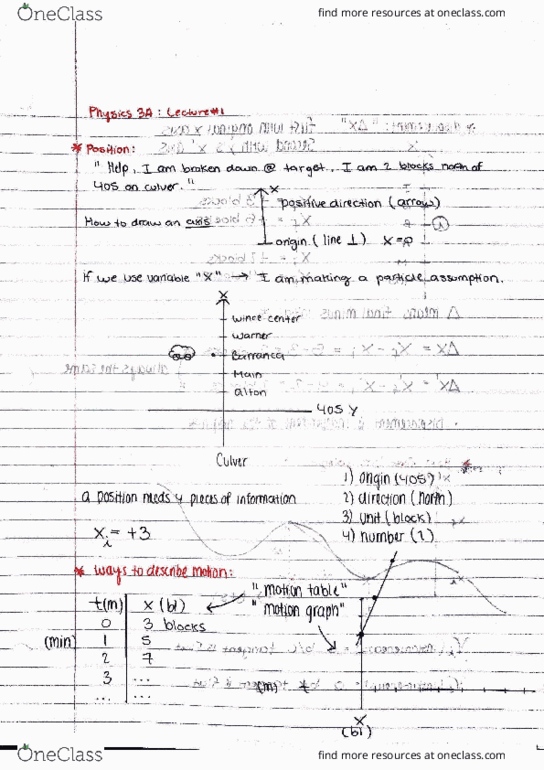 OneClass
find more resources at oneclass.com
Physics 3A : Lecture #1
* Position:
"Help, I am broken down @ target. I am 2 blocks north of
405 on culver."
x
positive direction (arrow)
How to draw an axis
origin (line ⊥) x=0
If we use variable "x" → I am making a particle assumption.
x
Warner
Barranca
Main
Alton
405 y
Culver
a position needs 4 pieces of information
1) origin (405)
2) direction (north)
3) unit (block)
4) number (2)
xi = +3
* ways to describe motion:
"motion table"
"motion graph"
t(m) x (bl)
0 3 blocks
(min) 1 5
2 7
3 ...
... ...
(m) t
x
(bl)
OneClass
find more resources at oneclass.com